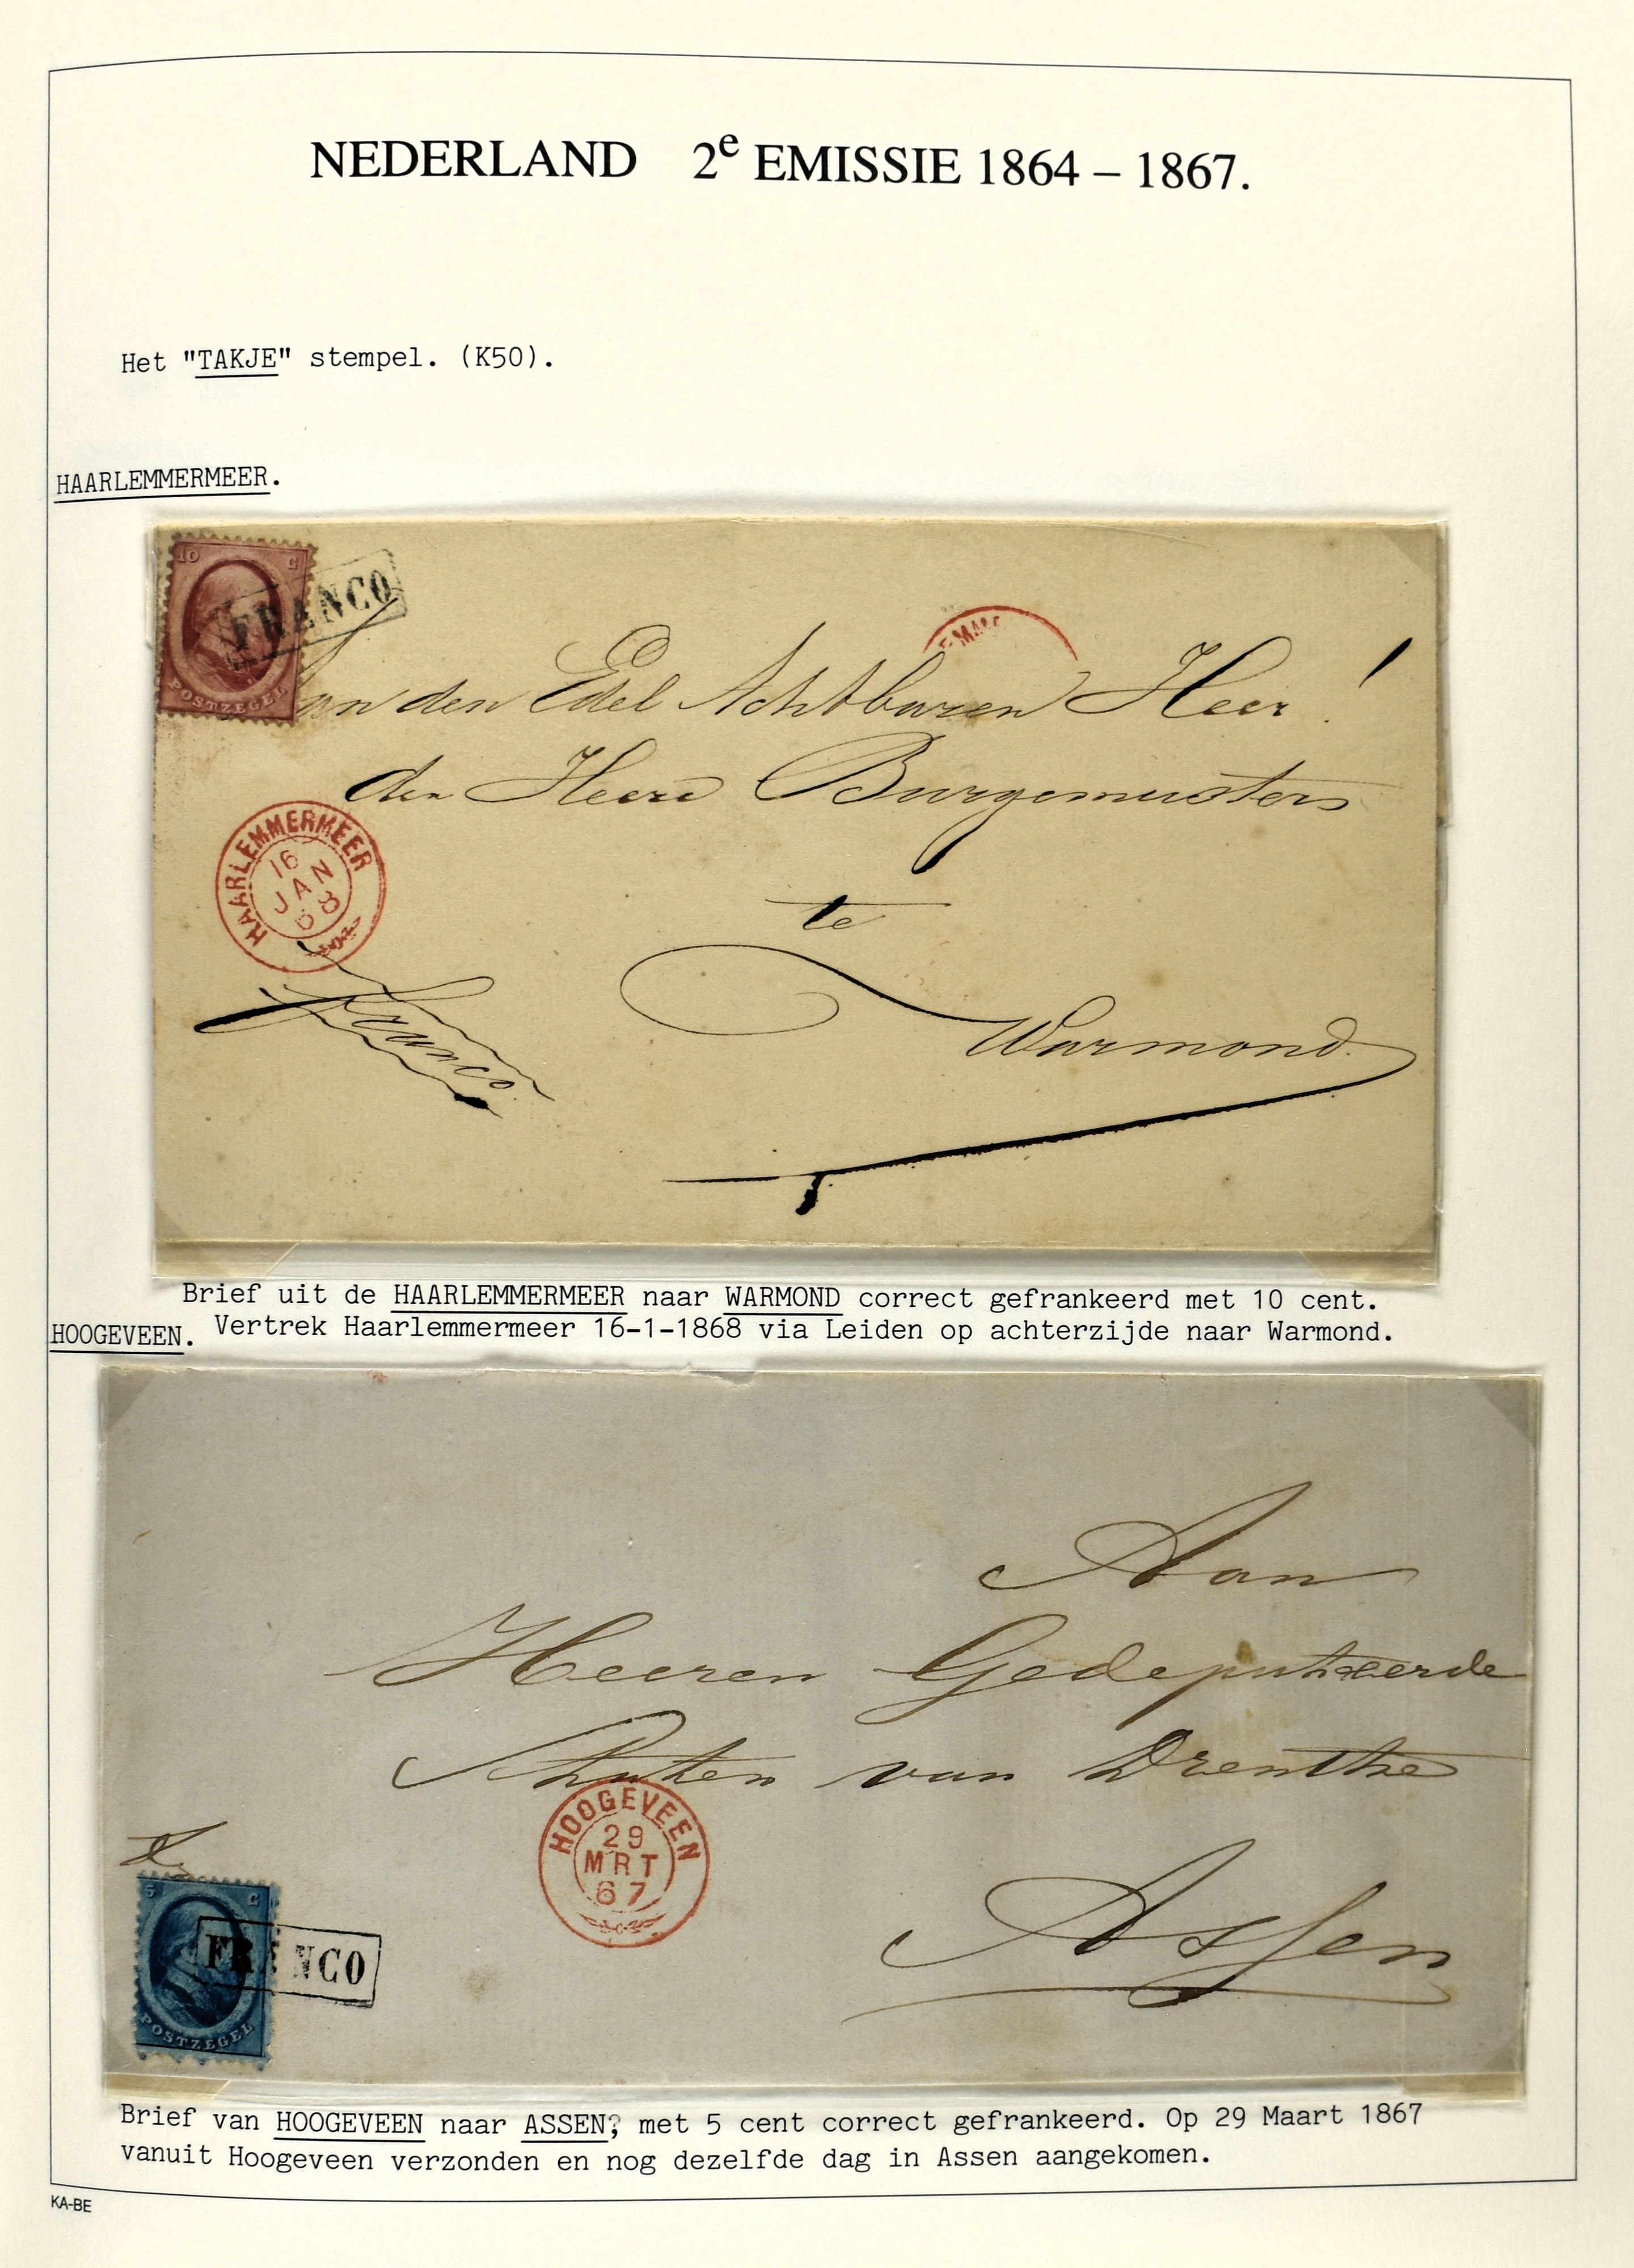 NEDERLAND 2e EMISSIE 1864 – 1867.
Het "TAKJE" stempel. (K50).
HAARLEMMERMEER.
10 C
FRANCO
POSTZEGEL
an den Edel Achtbaren Heer!
den Heere Burgemeester
HAARLEMMERMEER
16
JAN
68
te
Franco
Warmond.
Brief uit de HAARLEMMERMEER naar WARMOND correct gefrankeerd met 10 cent.
HOOGEVEEN. Vertrek Haarlemmermeer 16-1-1868 via Leiden op achterzijde naar Warmond.
Aan
Heeren Gedeputeerde
Staten van Drenthe
HOOGEVEEN
29
MRT
67
Assen
5 C
FRANCO
POSTZEGEL
Brief van HOOGEVEEN naar ASSEN, met 5 cent correct gefrankeerd. Op 29 Maart 1867
vanuit Hoogeveen verzonden en nog dezelfde dag in Assen aangekomen.
KA-BE